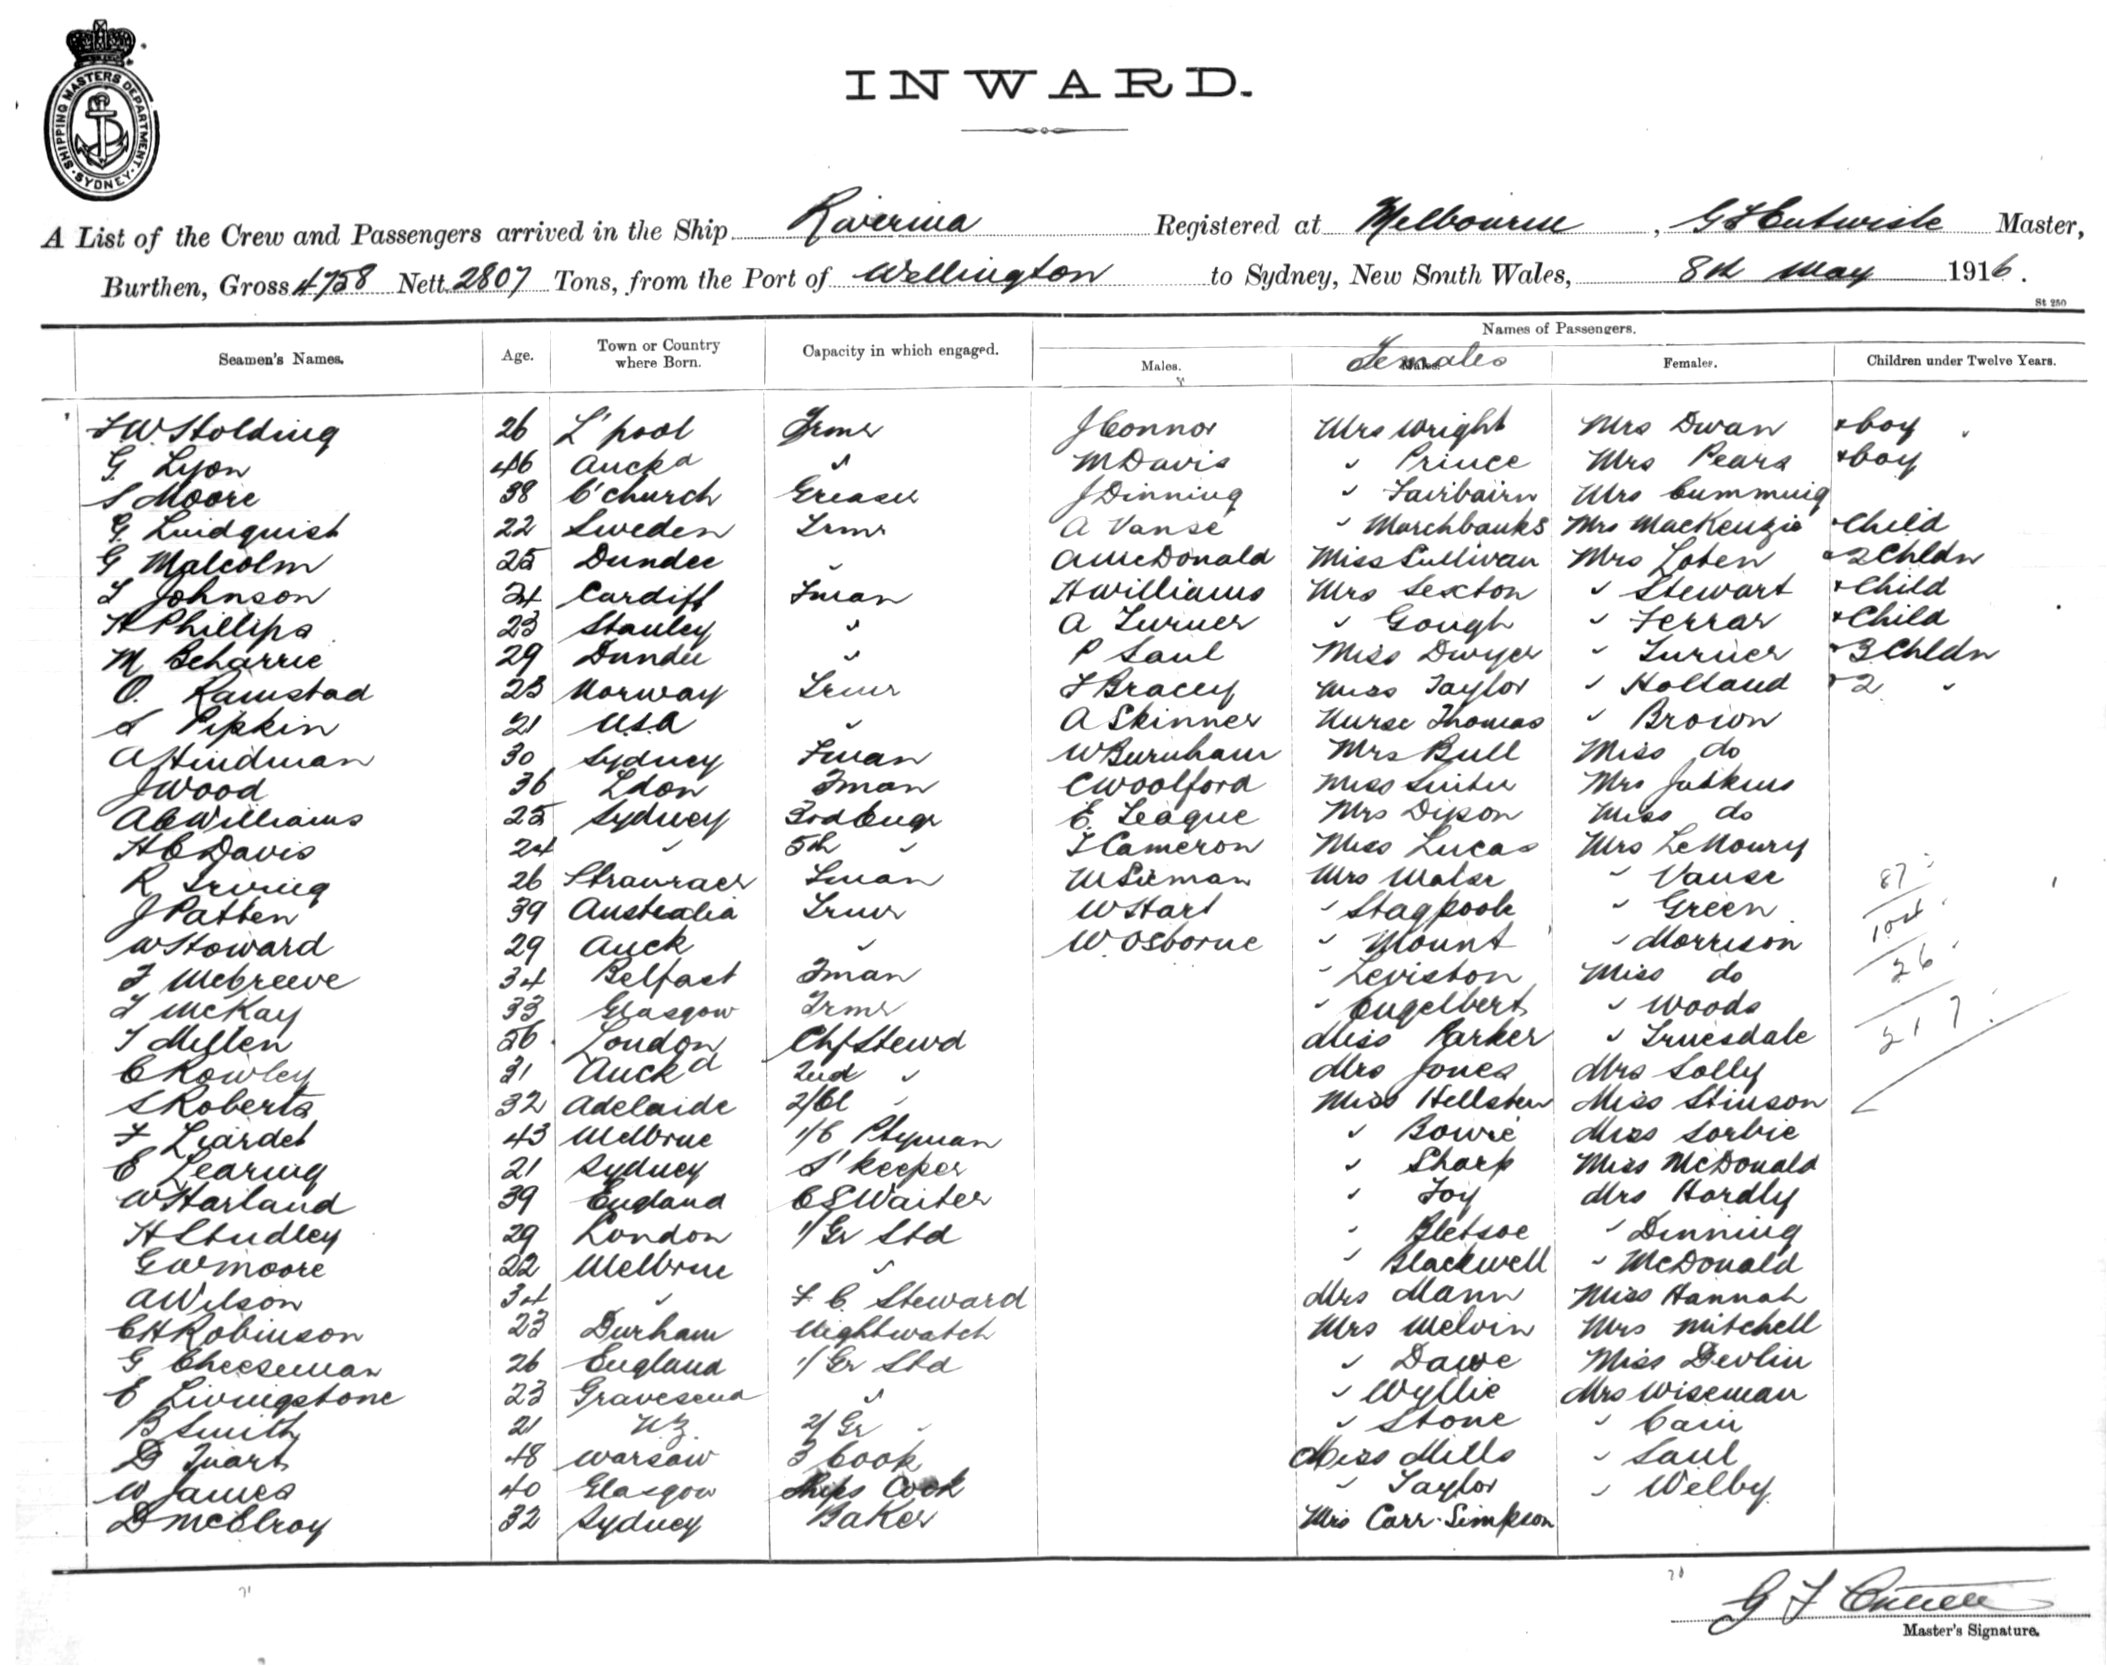 SHIPPING MASTERS DEPARTMENT. SYDNEY.
INWARD.
A List of the Crew and Passengers arrived in the Ship Riverina Registered at Melbourne, G F Entwisle Master,
Burthen, Gross 4758 Nett 2807 Tons, from the Port of Wellington to Sydney, New South Wales, 8th May 1916.
St 250
Names of Passengers.
Seamen's Names. Age. Town or Country where Born. Capacity in which engaged. Males. Females Females. Children under Twelve Years.
F.W. Holding 26 L'pool Trmr J Connor Mrs Wright Mrs Dwan & boy
G. Lyon 46 Auckd " M Davis " Prince Mrs Pears & boy
S Moore 38 C'church Greaser J Dinning " Fairbairn Mrs Cumming
G. Lindquist 22 Sweden Trmr A Vanse " Marchbanks Mrs MacKenzie & Child
G Malcolm 25 Dundee " A McDonald Miss Sullivan Mrs Loten & 2 Chldn
T Johnson 24 Cardiff Fman H Williams Mrs Sexton " Stewart & Child
H Phillips 23 Stanley " A Turner " Gough " Ferrar & Child
M Beharrie 29 Dundee " P Saul Miss Dwyer " Turner & 3 Chldn
O. Ramstad 23 Norway Trmr F Bracey Miss Taylor " Holland & 2 "
S Pipkin 21 U.S.A " A Skinner Nurse Thomas " Brown
A Hindman 30 Sydney Fman W Burnham Mrs Bull Miss do
J Wood 36 Ldon Fman C Woolford Miss Mrs Judkins
A C Williams 25 Sydney 3rd Engr E. Teague Mrs Dixon Miss do
H C Davis 24 " 5th " T Cameron Miss Lucas Mrs LeNoury
R. Irving 26 Stranraer Fman Mrs " Vause 87
J Patten 39 Australia Trmr W Hart " Stagpoole " Green 104
W Howard 29 Auck " W. Osborne " Mount " Morrison
F McGreeve 34 Belfast Fman " Leviston Miss do 26
T McKay 33 Glasgow Trmr " Engelbert " Woods
T Mellen 56 London Chf Stewd Miss Parker " Truesdale 217
C Rowley 31 Auckd 2nd " Mrs Jones Mrs Solly
S Roberts 32 Adelaide 2/Cl " Miss Hellsten Miss Stinson
F Liardet 43 Melbrne 1/C Ptyman " Bowie Miss Sorbie
E Learing 21 Sydney S'keeper " Sharp Miss McDonald
W Harland 39 England C S Waiter " Foy Mrs Hardly
H Studley 29 London 1/Gr Std " Bletsoe " Dinning
G W Moore 22 Melbrne " " Blackwell " McDonald
A Wilson 34 " F. C. Steward Mrs Mann Miss Hannah
C H Robinson 23 Durham Nightwatch Mrs Melvin Mrs Mitchell
G Cheeseman 26 England 1/Gr Std " Dawe Miss Devlin
E Livingstone 23 Gravesend " " Wyllie Mrs Wiseman
B Smith 21 N.Z. 2/Gr " " Stone " Cain
D Tuart 48 Warsaw 3 Cook Miss Mills " Saul
W James 40 Glasgow Ships Cook " Taylor " Welby
D McElroy 32 Sydney Baker Mrs Carr-Simpson
G F
Master's Signature.